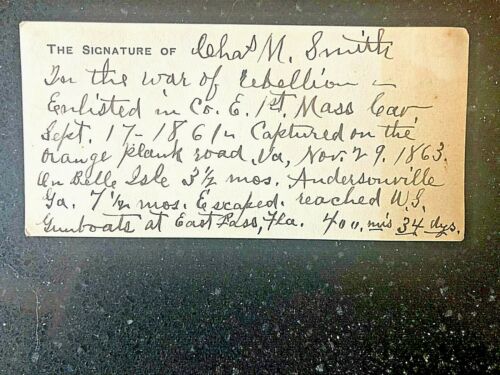 THE SIGNATURE OF Chas M. Smith
In the war of rebellion –
Enlisted in Co. E. 1st. Mass Cav.
Sept. 17 - 1861 – Captured on the
orange plank road, Va, Nov. 29. 1863.
On Belle Isle 3½ mos. Andersonville
Ga. 7½ mos. Escaped. reached U.S.
Gunboats at East Pass, Fla. 400 mis 34 dys.